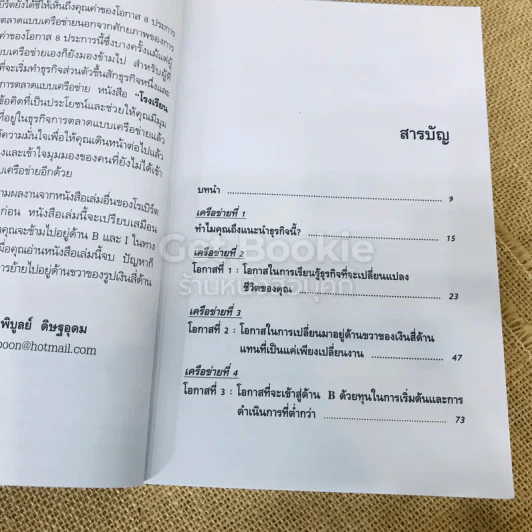 ได้ชี้ให้เห็นถึงคุณค่าของโอกาส 8 ประการ
ตลาดแบบเครือข่ายนอกจากศักยภาพของการ
ค่าของโอกาส 8 ประการนี้ซึ่งบางครั้งแม้แต่ผู้
บเครือข่ายเองก็ยังมองข้ามไป สำหรับผู้ที่
ที่จะเริ่มทำธุรกิจส่วนตัวขึ้นสักธุรกิจหนึ่งและ
การตลาดแบบเครือข่าย หนังสือ "โรงเรียน
ข้อคิดที่เป็นประโยชน์และช่วยให้คุณมีมุม
ที่อยู่ในธุรกิจการตลาดแบบเครือข่ายแล้ว
ความมั่นใจเพื่อให้คุณเดินหน้าต่อไปแล้ว
และเข้าใจมุมมองของคนที่ยังไม่ได้เข้า
บเครือข่ายอีกด้วย
ามผลงานจากหนังสือเล่มอื่นของโรเบิร์ต
ก่อน หนังสือเล่มนี้จะเปรียบเสมือน
คุณจะข้ามไปอยู่ด้าน B และ I ในทาง
มื่อคุณอ่านหนังสือเล่มนี้จบ ปัญหาก็
ารย้ายไปอยู่ด้านขวาของรูปเงินสี่ด้าน
พิบูลย์ ดิษฐอุดม
poon@hotmail.com
สารบัญ
บทนำ 9
เครือข่ายที่ 1
ทำไมคุณถึงแนะนำธุรกิจนี้? 15
เครือข่ายที่ 2
โอกาสที่ 1 : โอกาสในการเรียนรู้ธุรกิจที่จะเปลี่ยนแปลง
ชีวิตของคุณ 23
เครือข่ายที่ 3
โอกาสที่ 2 : โอกาสในการเปลี่ยนมาอยู่ด้านขวาของเงินสี่ด้าน
แทนที่เป็นแค่เพียงเปลี่ยนงาน 47
เครือข่ายที่ 4
โอกาสที่ 3 : โอกาสที่จะเข้าสู่ด้าน B ด้วยทุนในการเริ่มต้นและการ
ดำเนินการที่ต่ำกว่า 73
Got Bookie
ร้านหนังสือบุคกี้